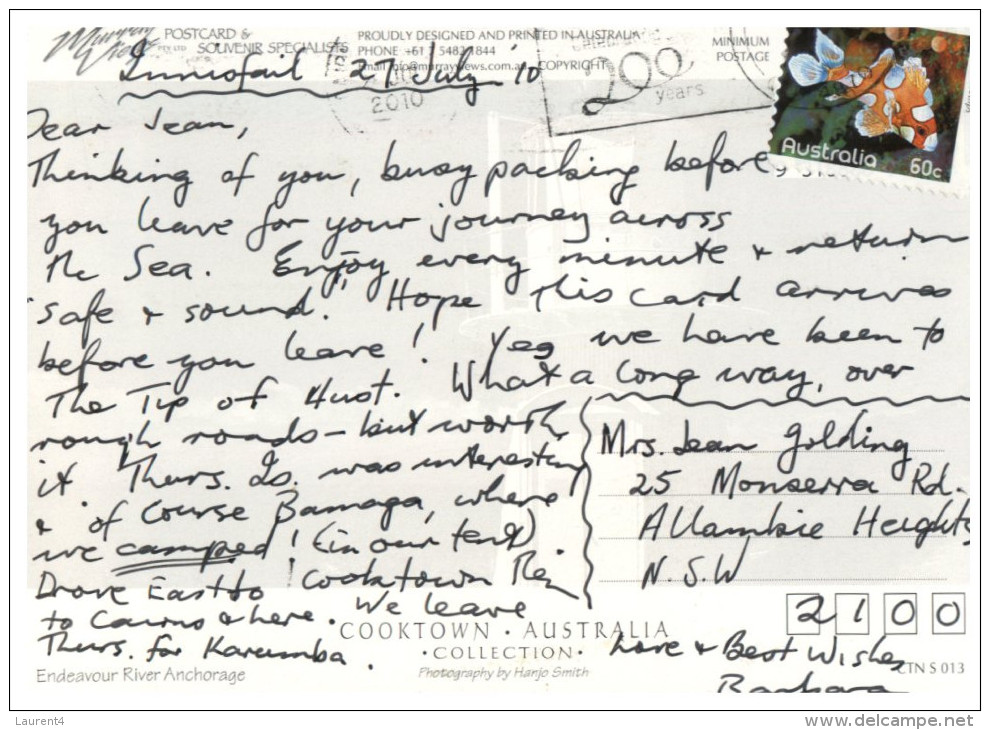 Murray Views PTY LTD
POSTCARD &
SOUVENIR SPECIALISTS
PROUDLY DESIGNED AND PRINTED IN AUSTRALIA
PHONE +61 7 5482 1844
Email info@murrayviews.com.au COPYRIGHT
MINIMUM
POSTAGE
2010
200
years
Australia 60c
Innisfail 27 July '10
Dear Jean,
Thinking of you, busy packing before
you leave for your journey across
the Sea. Enjoy every minute & return
safe & sound. Hope this card arrives
before you leave! Yes we have been to
The Tip of Aust. What a long way, over
rough roads - but worth
it. Thurs. Is. was interesting
& of Course Bamaga, where
we camped! (in our tent)
Drove East to Cooktown then
to Cairns & here. We leave
Thurs. for Karumba.
Mrs. Jean Golding
25 Monserra Rd.
Allambie Heights
N.S.W
2100
Love & Best Wishes
Barbara
COOKTOWN · AUSTRALIA
· COLLECTION ·
Endeavour River Anchorage
Photography by Hanjo Smith
CTN S 013
Laurent4
www.delcampe.net